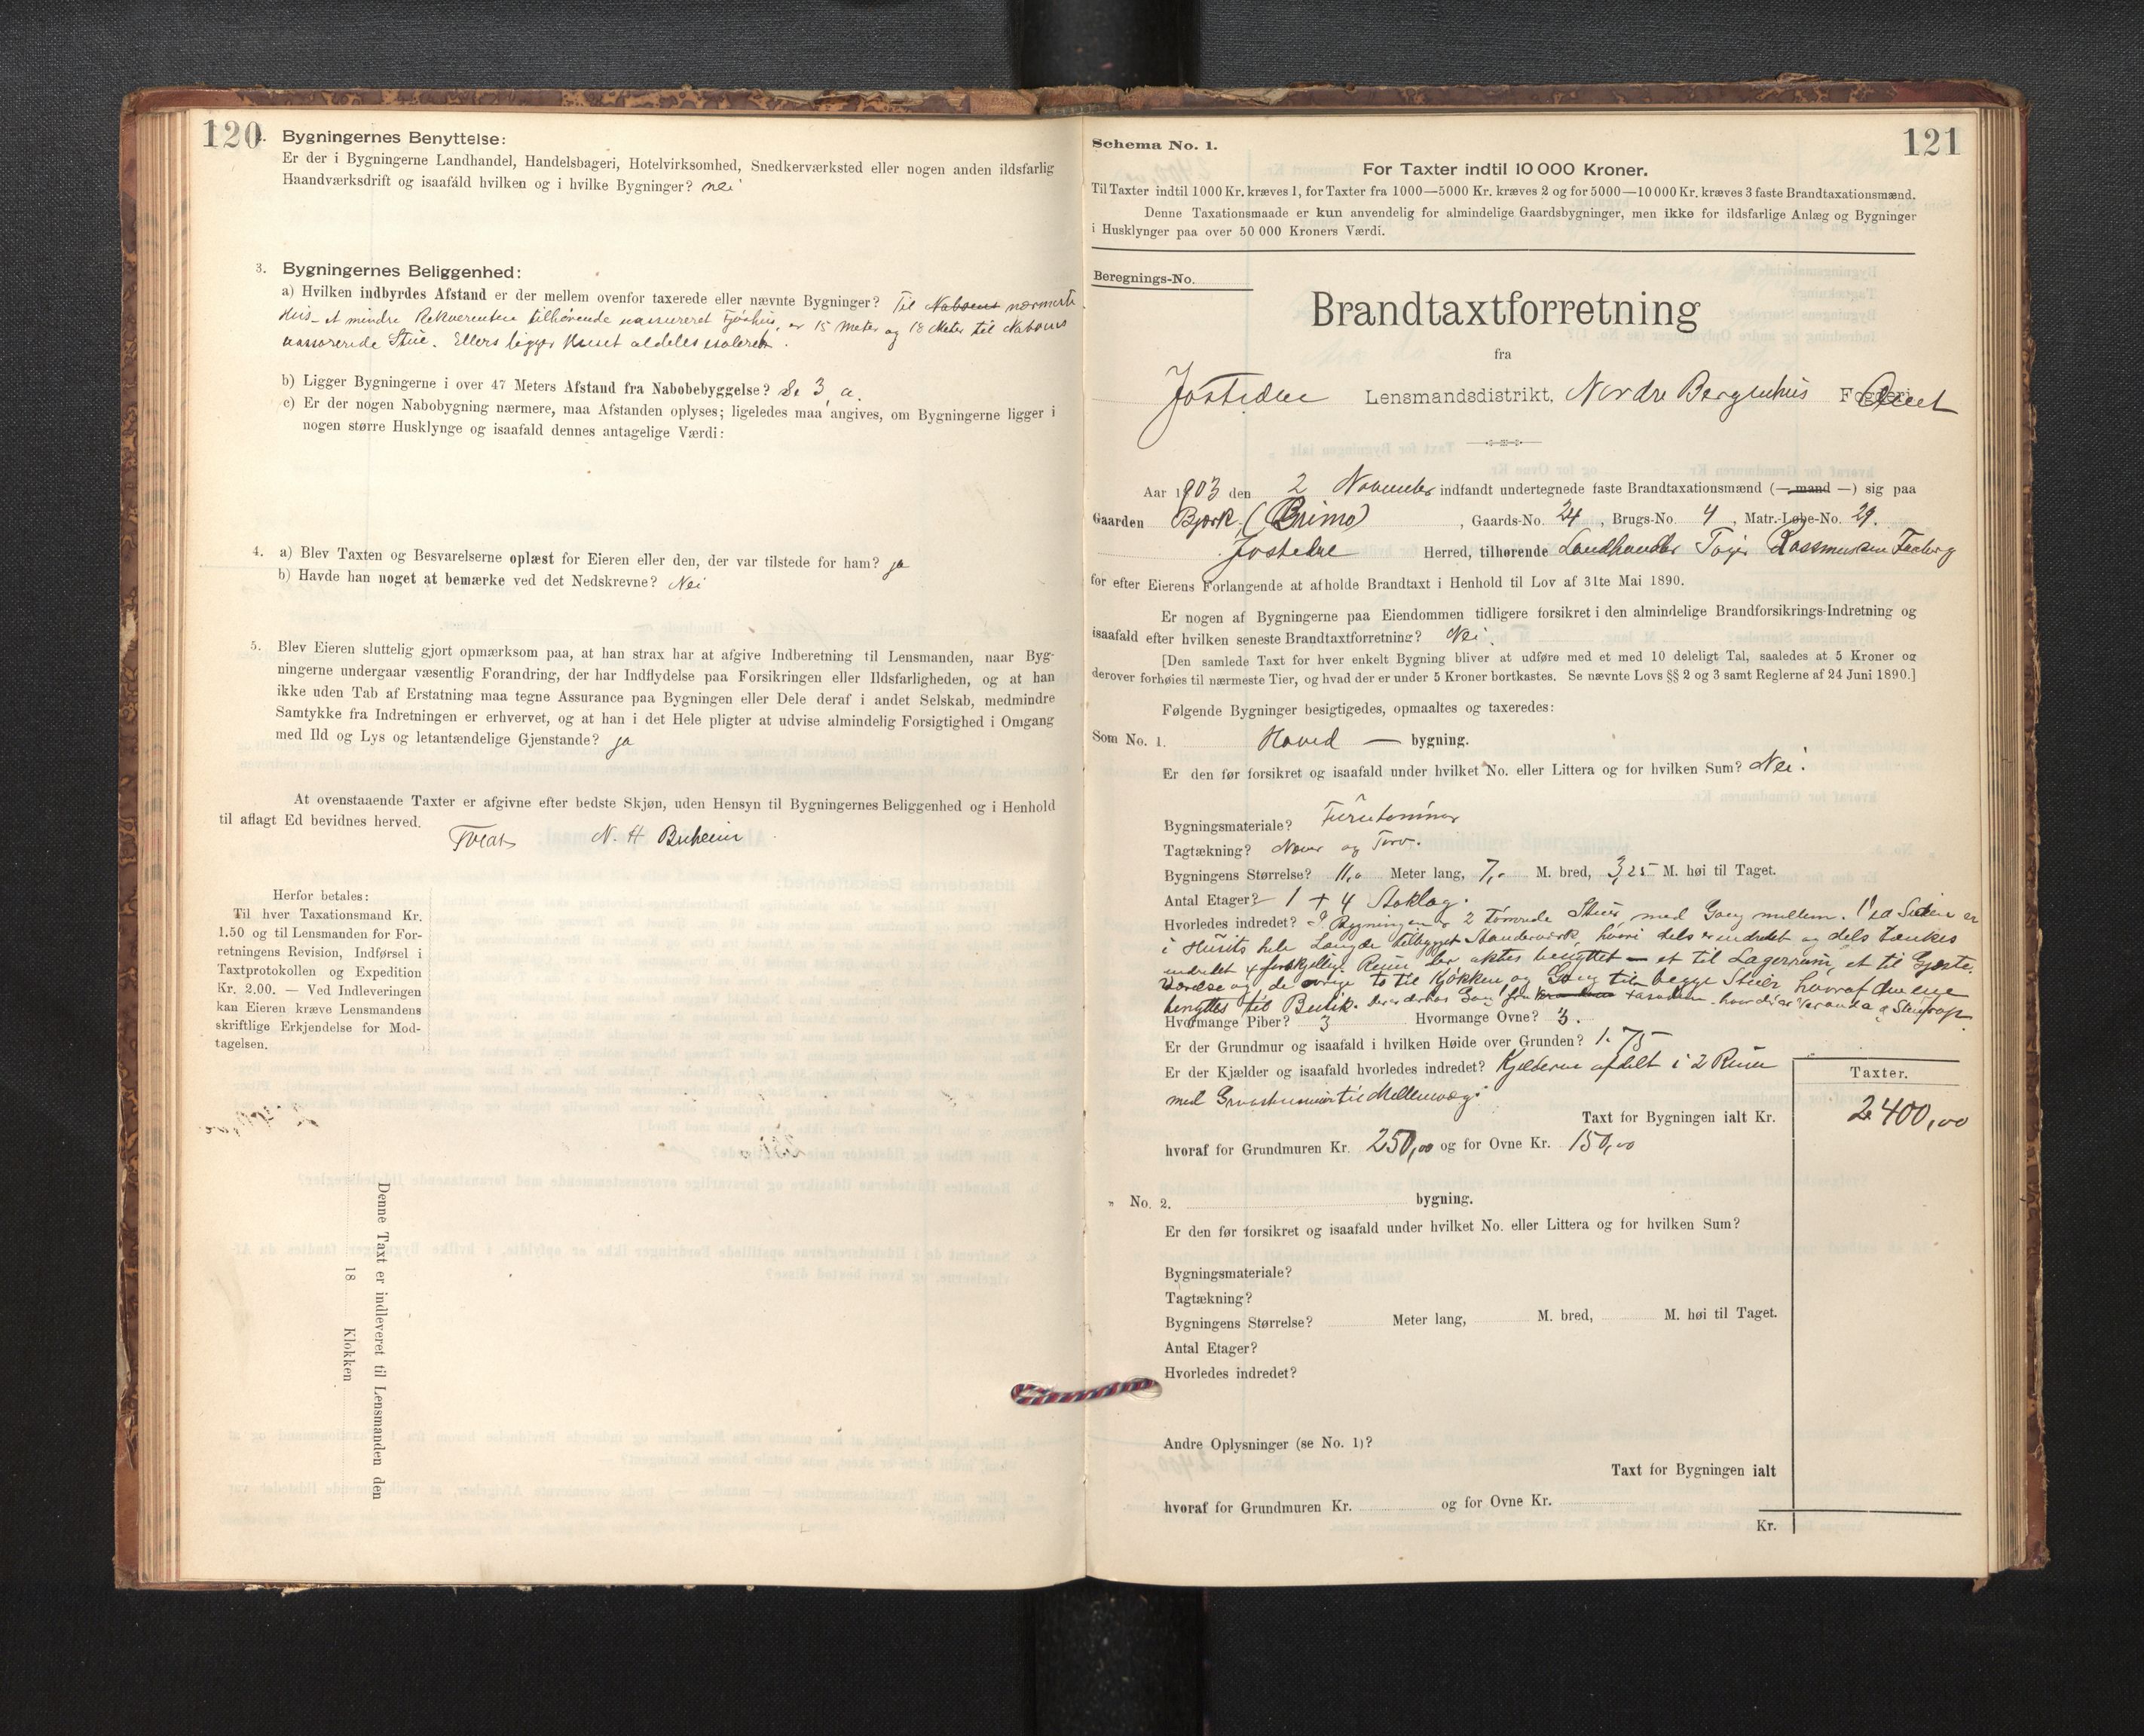 120
2. Bygningernes Benyttelse:
Er der i Bygningerne Landhandel, Handelsbageri, Hotelvirksomhed, Snedkerværksted eller nogen anden ildsfarlig
Haandværksdrift og isaafald hvilken og i hvilke Bygninger? nei
3. Bygningernes Beliggenhed:
a) Hvilken indbyrdes Afstand er der mellem ovenfor taxerede eller nævnte Bygninger? Til Naboens nærmeste
Hus - et mindre Rekvirenten tilhørende uassureret Fjøshus, er 15 Meter og 18 Meter til Naboens
uassurerede Stue. Ellers ligger Huset aldeles isoleret.
b) Ligger Bygningerne i over 47 Meters Afstand fra Nabobebyggelse? Se 3, a.
c) Er der nogen Nabobygning nærmere, maa Afstanden oplyses; ligeledes maa angives, om Bygningerne ligger i
nogen større Husklynge og isaafald dennes antagelige Værdi:
4. a) Blev Taxten og Besvarelserne oplæst for Eieren eller den, der var tilstede for ham? ja
b) Havde han noget at bemærke ved det Nedskrevne? Nei
5. Blev Eieren sluttelig gjort opmærksom paa, at han strax har at afgive Indberetning til Lensmanden, naar Byg-
ningerne undergaar væsentlig Forandring, der har Indflydelse paa Forsikringen eller Ildsfarligheden, og at han
ikke uden Tab af Erstatning maa tegne Assurance paa Bygningen eller Dele deraf i andet Selskab, medmindre
Samtykke fra Indretningen er erhvervet, og at han i det Hele pligter at udvise almindelig Forsigtighed i Omgang
med Ild og Lys og letantændelige Gjenstande? ja
At ovenstaaende Taxter er afgivne efter bedste Skjøn, uden Hensyn til Bygningernes Beliggenhed og i Henhold
til aflagt Ed bevidnes herved.
N. H Buheim
Herfor betales:
Til hver Taxationsmand Kr.
1.50 og til Lensmanden for For-
retningens Revision, Indførsel i
Taxtprotokollen og Expedition
Kr. 2.00. — Ved Indleveringen
kan Eieren kræve Lensmandens
skriftlige Erkjendelse for Mod-
tagelsen.
Denne Taxt er indleveret til Lensmanden den
18 Klokken
121
Schema No. 1.
For Taxter indtil 10 000 Kroner.
Til Taxter indtil 1000 Kr. kræves 1, for Taxter fra 1000—5000 Kr. kræves 2 og for 5000—10 000 Kr. kræves 3 faste Brandtaxationsmænd.
Denne Taxationsmaade er kun anvendelig for almindelige Gaardsbygninger, men ikke for ildsfarlige Anlæg og Bygninger
i Husklynger paa over 50 000 Kroners Værdi.
Beregnings-No.
Brandtaxtforretning
fra
Jostedee Lensmandsdistrikt, Nordre Bergenhus Fogderi Amt
Aar 1903 den 2 November indfandt undertegnede faste Brandtaxationsmænd (— mand —) sig paa
Gaarden Bjørk (Brimo), Gaards-No. 24, Brugs-No. 4, Matr.-Løbe-No. 29.
Jostedee Herred, tilhørende Landhandler Røssmusen Faaberg
for efter Eierens Forlangende at afholde Brandtaxt i Henhold til Lov af 31te Mai 1890.
Er nogen af Bygningerne paa Eiendommen tidligere forsikret i den almindelige Brandforsikrings-Indretning og
isaafald efter hvilken seneste Brandtaxtforretning? Nei.
[Den samlede Taxt for hver enkelt Bygning bliver at udføre med et med 10 deleligt Tal, saaledes at 5 Kroner og
derover forhøies til nærmeste Tier, og hvad der er under 5 Kroner bortkastes. Se nævnte Lovs §§ 2 og 3 samt Reglerne af 24 Juni 1890.]
Følgende Bygninger besigtigedes, opmaaltes og taxeredes:
Som No. 1. Hoved — bygning.
Er den før forsikret og isaafald under hvilket No. eller Littera og for hvilken Sum? Nei.
Bygningsmateriale? Furutømmer
Tagtækning? Never og Torv.
Bygningens Størrelse? 11,0 Meter lang, 7,0 M. bred, 3,25 M. høi til Taget.
Antal Etager? 1 + 4 Stoklag.
Hvorledes indredet? I Bygningen er 2 Tømrede Stuer med Gang mellem. Ved Siden er
i Husets hele Længde tilbygget Standerværk, hvori dels er indredet og dels tænkes
indredet 4 forskjellige Rum der agtes benyttet — et til Lagerrum, et til Gjæste-
værelse og de øvrige to til Kjøkken og Gang til begge Stuer, hvoraf den ene
benyttes til Butik. Veranda Stentrap.
Hvormange Piber? 3 Hvormange Ovne? 3.
Er der Grundmur og isaafald i hvilken Høide over Grunden? 1.75
Er der Kjælder og isaafald hvorledes indredet? Kjælderen afdelt i 2 Rum
med Graastensmur til Mellemvæg.
Taxter.
Taxt for Bygningen ialt Kr. 2400,00
hvoraf for Grundmuren Kr. 250,00 og for Ovne Kr. 150,00
" No. 2. bygning.
Er den før forsikret og isaafald under hvilket No. eller Littera og for hvilken Sum?
Bygningsmateriale?
Tagtækning?
Bygningens Størrelse? Meter lang, M. bred, M. høi til Taget.
Antal Etager?
Hvorledes indredet?
Andre Oplysninger (se No. 1)?
Taxt for Bygningen ialt
hvoraf for Grundmuren Kr. og for Ovne Kr.
Kr.